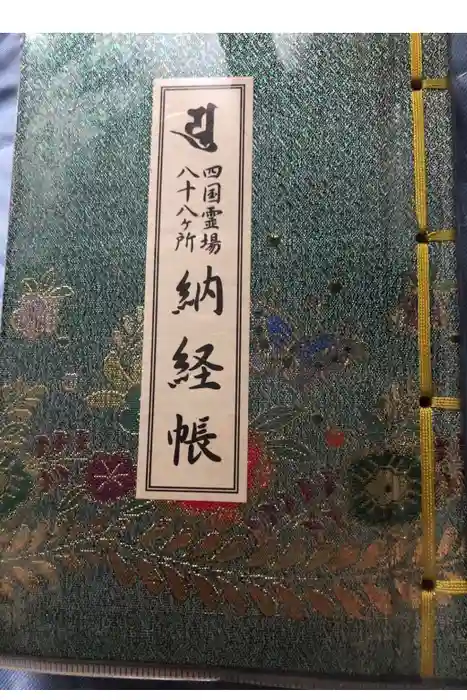 𑖀𑖿
四国霊場
八十八ヶ所
納経帳